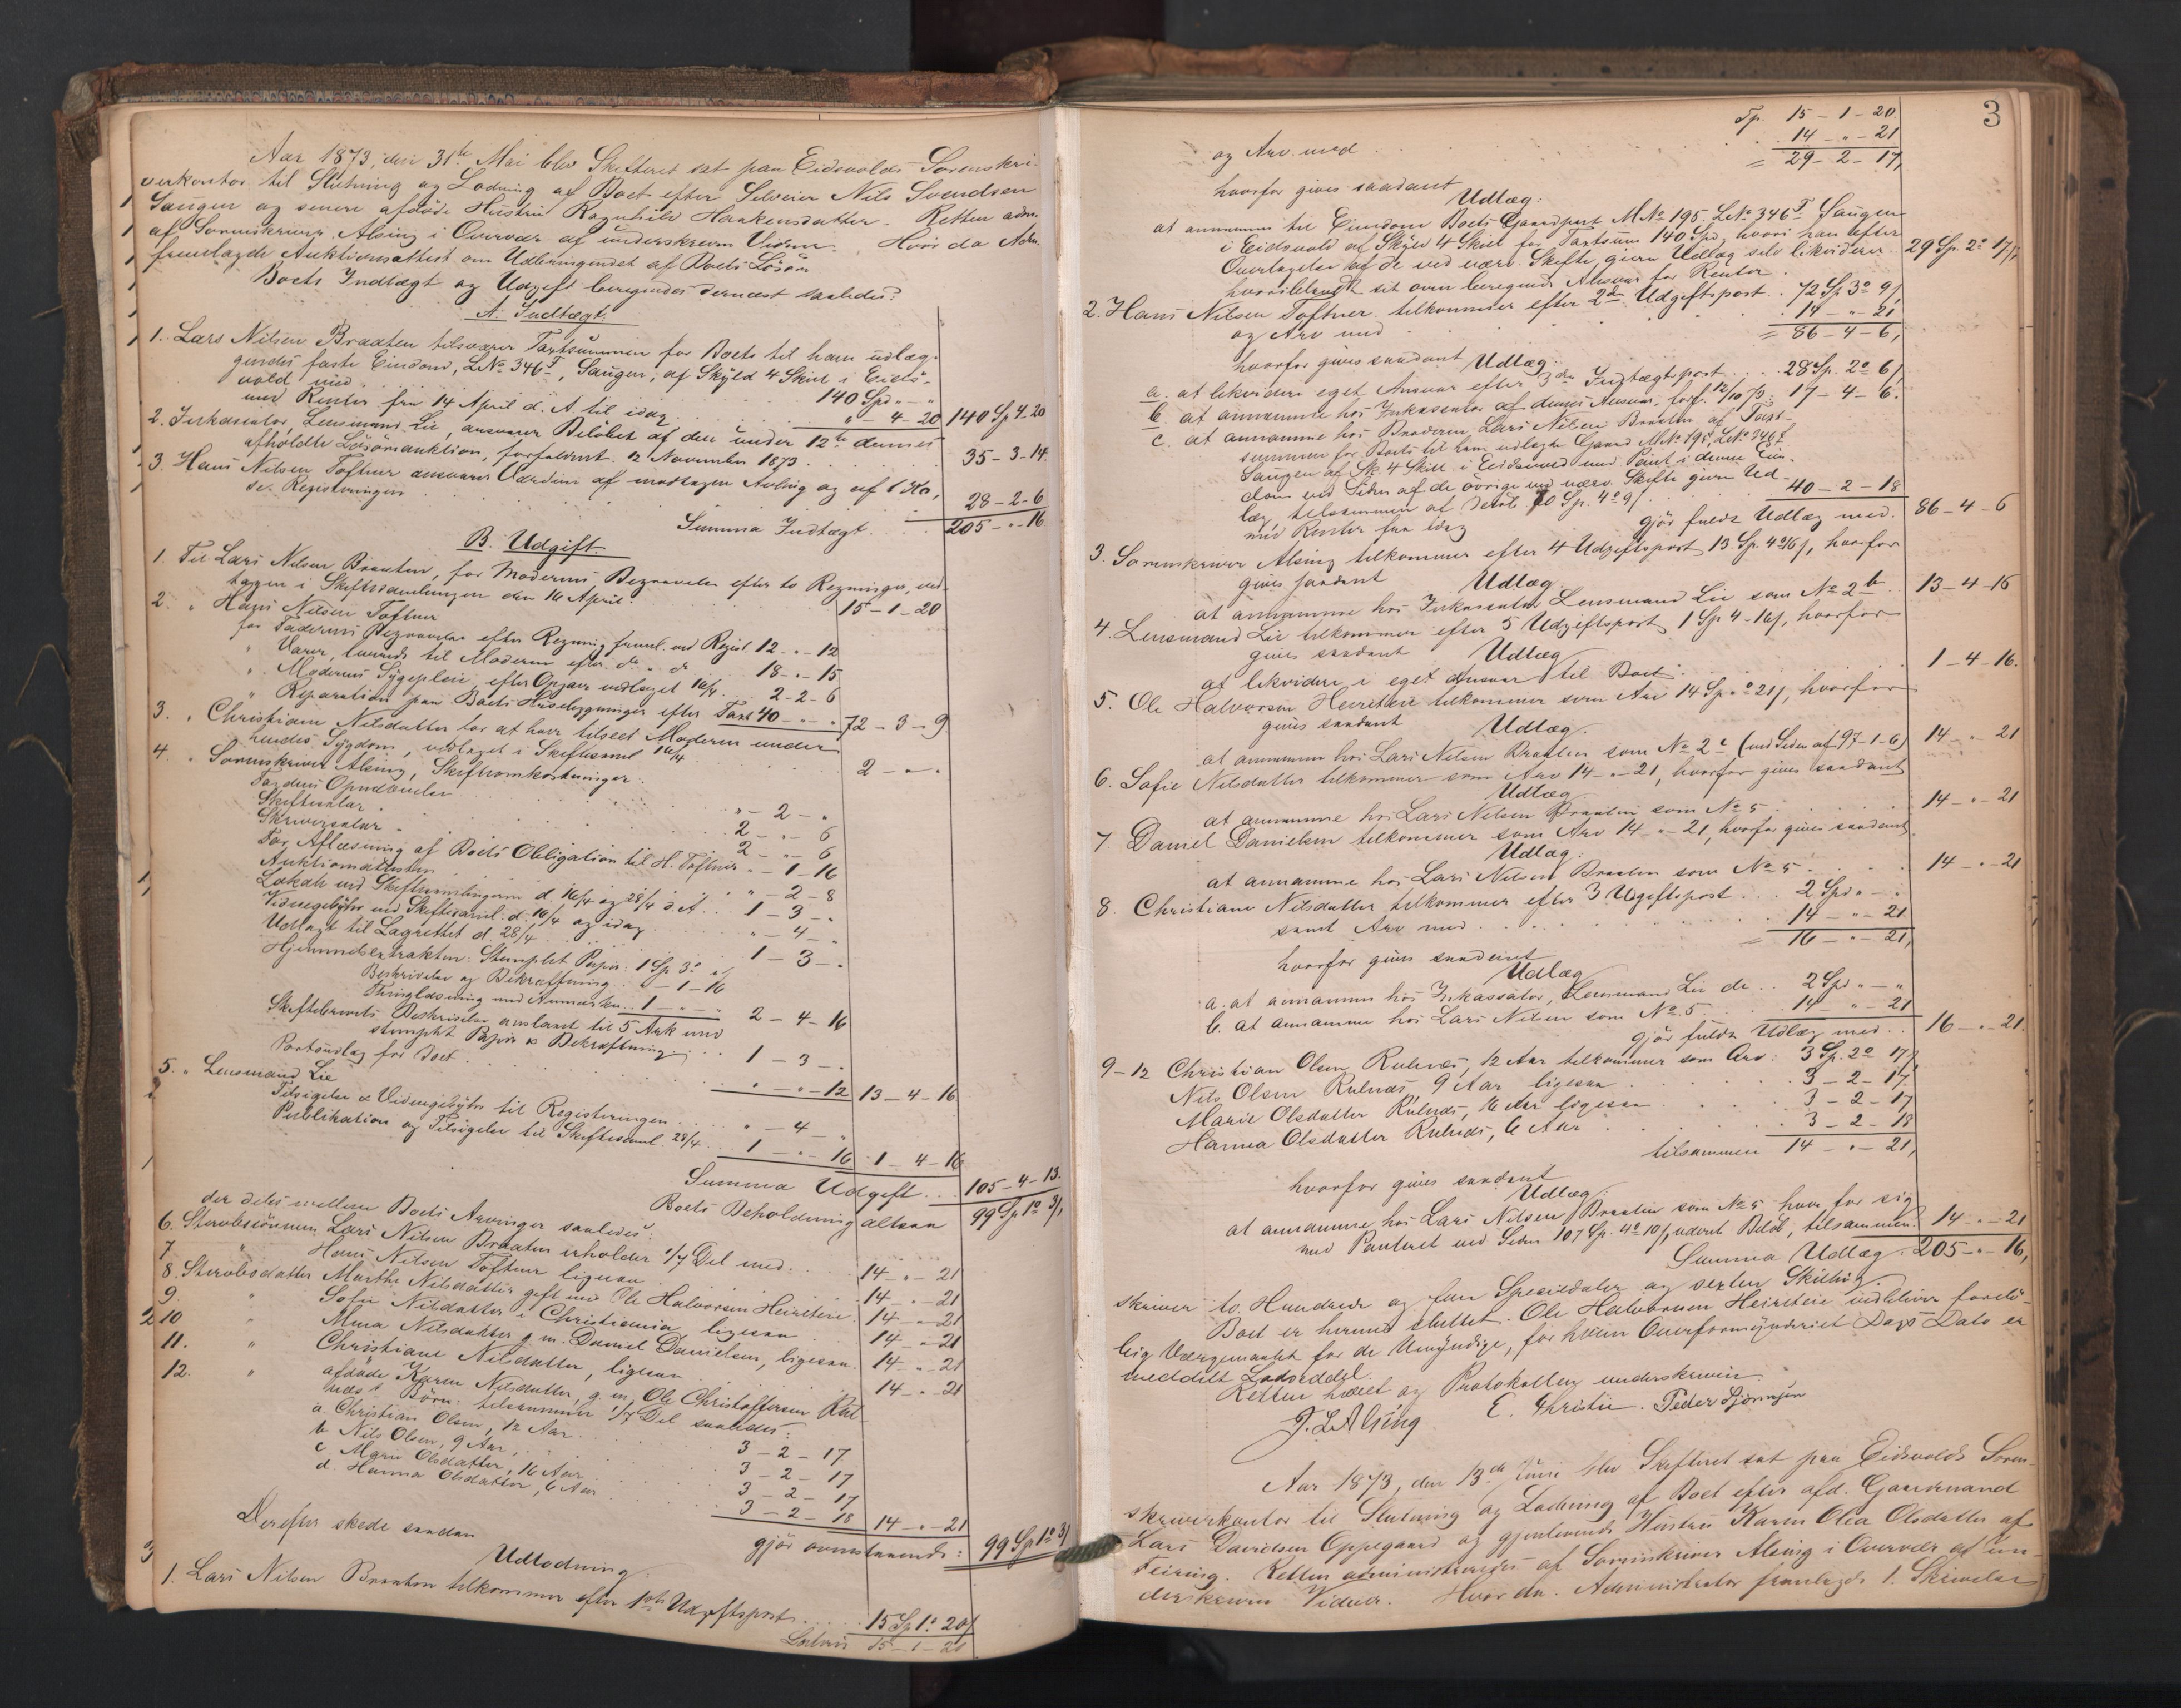 Aar 1873, den 31te Mai blev Skifteret sat paa Eidsvolds Sorenskri-
verkontor til Slutning og Lodning af Boet efter Selveier Nils Svendsen
Saugen og senere afdøde Hustru Ragnhild Haakensdatter. Retten adm.
af Sorenskriver Alsing i Overvær af underskrevne Vidner. Hvor da Adm.
fremlagde Auktionsattest om Udbringendet af Boets Løsøre
Boets Indtægt og Udgift beregnedes dernæst saaledes:
A. Indtægt.
1. Lars Nilsen Braaten tilsvarer Taxtsummen for Boets til ham udlæg-
gendes faste Eiendom, LNo 346f, Saugen, af Skyld 4 Skill i Eids-
vold med 140 Spd " - "
med Renter fra 14 April d. A. til idag " - 4 - 20 140 Sp 4. 20
2. Inkasator, Lensmand Lie, ansvarer Beløbet af den under 12te dennes
afholdte Løsøreauktion, forfaldent 12 November 1873 35 - 3 - 14.
3. Hans Nilsen Toftner ansvarer Værdien af modtagen Avling og af 1 Ko,
se Registreringen 28 - 2 - 6
Summa Indtægt 205 - " - 16
B. Udgift
1. Til Lars Nilsen Braaten, for Moderens Begravelse efter to Regninger, ved-
tagen i Skiftesamlingen den 16 April 15 - 1 - 20
2. " Hans Nilsen Toftner
for Faderens Begravelse efter Regning freml. ved Regist. 12 - " - 12
" Varer, leverede til Moderen efter do " do 18 - " - 15
" Moderens Sygepleie, efter Opgave vedtaget 16/4 2 - 2 - 6
" Reparation paa Boets Husebygninger efter Taxt 40 - " - " 72 - 3 - 9
3. " Christiane Nilsdatter for at have tilseet Moderen under
hendes Sygdom, vedtaget i Skiftesaml 16/4 2 - " - "
4. " Sorenskriver Alsing, Skifteomkostninger:
Faldens Opnævnelse " - 2 - "
Skiftesalær 2 - " - 6
Skriversalær 2 - " - 6
For Aflæsning af Boets Obligation til H. Toftner " - 1 - 16
Auktionsattesten " - 2 - 8
Lokale ved Skiftesamlingerne d. 16/4 og 28/4 d. A. 1 - 3 - "
Vidnegebyhr ved Skiftesaml. d. 16/4 og idag " - 4 - "
Udlagt til Lagrettet d. 28/4 1 - 3 - "
Hjemmelsextrakten: Stemplet Papir: 1 Sp 3 " "
Beskrivelse og Bekræftning " - 1 - 16
Thinglæsning med Anmærkn. 1 - " - " 2 - 4 - 16
Skiftebrevets Beskrivelse anslaaet til 5 Ark med
stemplet Papir & Bekræftning 1 - 3 - "
Portoudlæg for Boet " - " - 12 13 - 4 - 16
5. " Lensmand Lie
Tilsigelse & Vidnegebyhr til Registreringen " - 4 - "
Publikation og Tilsigelse til Skiftesaml. 28/4 1 - " - 16 1 - 4 - 16
Summa Udgift 105 - 4 - 13.
Boets Beholdning altsaa 99 Sp 1 o 3/
der deles mellem Boets Arvinger saaledes:
6. Stervbosønnen Lars Nilsen Braaten erholder 1/7 Del med 14 - " - 21
7. " Hans Nilsen Toftner ligesaa 14 - " - 21
8. Stervbosdatter Marthe Nilsdatter gift med Ole Halvorsen Heireteie 14 - " - 21
9. " Sofie Nilsdatter i Christiania ligesaa 14 - " - 21
10 " Mina Nilsdatter g. m. Daniel Danielsen, ligesaa 14 - " - 21
11. " Christiane Nilsdatter, ligesaa 14 - " - 21
12. " afdøde Karen Nilsdatter, g. m. Ole Christoffersen Rul-
næs's Børn: tilsammen 1/7 Del saaledes:
a. Christian Olsen, 12 Aar 3 - 2 - 17
b. Nils Olsen, 9 Aar 3 - 2 - 17
c. Marie Olsdatter, 16 Aar 3 - 2 - 17
d. Hanna Olsdatter, 6 Aar 3 - 2 - 18 14 - " - 21
gjør ovenstaaende: 99 Sp 1 o 3/
Derefter skede saadan
Udlodning.
1. Lars Nilsen Braaten tilkommer efter 1ste Udgiftspost 15 Sp 1 o 20/
Lateris 15 - 1 - 20
3
Tp. 15 - 1 - 20
og Arv med 14 - " - 21
= 29 - 2 - 17,
hvorfor gives saadant
Udlæg:
at annamme til Eiendom Boets Gaardpart MNo 195. LNo 346f Saugen
i Eidsvold af Skyld 4 Skill for Taxtsum 140 Spd, hvori han efter
Overtagelse af de ved nærv. Skifte givne Udlæg selv likviderer 29 Sp. 2 o 17/,
hvoriblandt sit oven beregnede Ansvar for Renter.
2. Hans Nilsen Toftner tilkommer efter 2den Udgiftspost 72 Sp 3 o 9/
og Arv med 14 - " - 21
= 86 - 4 - 6,
hvorfor gives saadant Udlæg:
a. at likvidere eget Ansvar efter 3die Indtægtspost 28 Sp. 2 o 6/
b. at annamme hos Inkasator af dennes Ansvar, forf. 12/10 73 17 - 4 - 6.
c. at annamme hos Broderen Lars Nilsen Braaten af Taxt-
summen for Boets til ham udlagte Gaard MNo 195, LNo 346f
Saugen af Sk. 4 Skill. i Eidsvold med Pant i denne Eien-
dom ved Siden af de øvrige ved nærv. Skifte givne Ud-
læg, tilsammen af Beløb 70 Sp. 4 o 9/
med Renter fra idag 40 - 2 - 18
gjør fuldt Udlæg med 86 - 4 - 6
3. Sorenskriver Alsing tilkommer efter 4 Udgiftspost 13 Sp. 4 o 16/, hvorfor
gives saadant Udlæg:
at annamme hos Inkasator Lensmand Lie som No 2 b 13 - 4 - 16
4. Lensmand Lie tilkommer efter 5 Udgiftspost 1 Sp 4 - 16/, hvorfor
gives saadant Udlæg
at likvidere i eget Ansvar til Boet 1 - 4 - 16.
5. Ole Halvorsen Heireteie tilkommer som Arv 14 Sp " o 21/, hvorfor
gives saadant Udlæg.
at annamme hos Lars Nilsen Braaten som No 2 c (ved Siden af 97 - 1 - 6) 14 - " - 21
6. Sofie Nilsdatter tilkommer som Arv 14 - " - 21, hvorfor gives saadant
Udlæg
at annamme hos Lars Nilsen Braaten som No 5 14 - " - 21
7. Daniel Danielsen tilkommer som Arv 14 - " - 21, hvorfor gives saadant
Udlæg:
at annamme hos Lars Nilsen Braaten som No 5 14 - " - 21
8. Christiane Nilsdatter tilkommer efter 3 Udgiftspost 2 Spd " - "
samt Arv med 14 - " - 21
= 16 - " - 21,
hvorfor gives saadant
Udlæg
a. at annamme hos Inkassator, Lensmand Lie de 2 Spd " - "
b. at annamme hos Lars Nilsen som No 5 14 - " - 21
gjør fuldt Udlæg med 16 - " - 21.
9-12 Christian Olsen Rulnæs, 12 Aar tilkommer som Arv: 3 Sp. 2 o 17/
Nils Olsen Rulnæs 9 Aar ligesaa 3 - 2 - 17.
Marie Olsdatter Rulnæs, 16 Aar ligesaa 3 - 2 - 17
Hanna Olsdatter Rulnæs, 6 Aar 3 - 2 - 18
tilsammen 14 - " - 21,
hvorfor gives saadant
Udlæg:
at annamme hos Lars Nilsen Braaten som No 5 hver for sig
med Panteret ved Siden 107 Sp. 4 o 10/, udørende Beløb, tilsammen 14 - " - 21
Summa Udlæg 205 - " - 16,
skriver to Hundrede og fem Speciedaler og sexten Skilling.
Boet er hermed sluttet. Ole Halvorsen Heireteie indbliver forelø-
big Værgemaalet for de Umyndige, for hvem Overformynderiet Dags Dato er
meddelt Lodseddel.
Retten hævet og Protokollen underskreven.
J. L. Alsing E. Christie. Peder Bjørnsen
Aar 1873, den 13de Juni blev Skifteret sat paa Eidsvolds Soren-
skriverkontor til Slutning og Lodning af Boet efter afd. Gaardmand
Lars Davidsen Oppegaard og gjenlevende Hustru Karen Olea Olsdatter af
Feiring. Retten administreredes af Sorenskriver Alsing i Overvær af un-
derskrevne Vidner. Hvor da Administrator fremlagde 1. Skrivelse